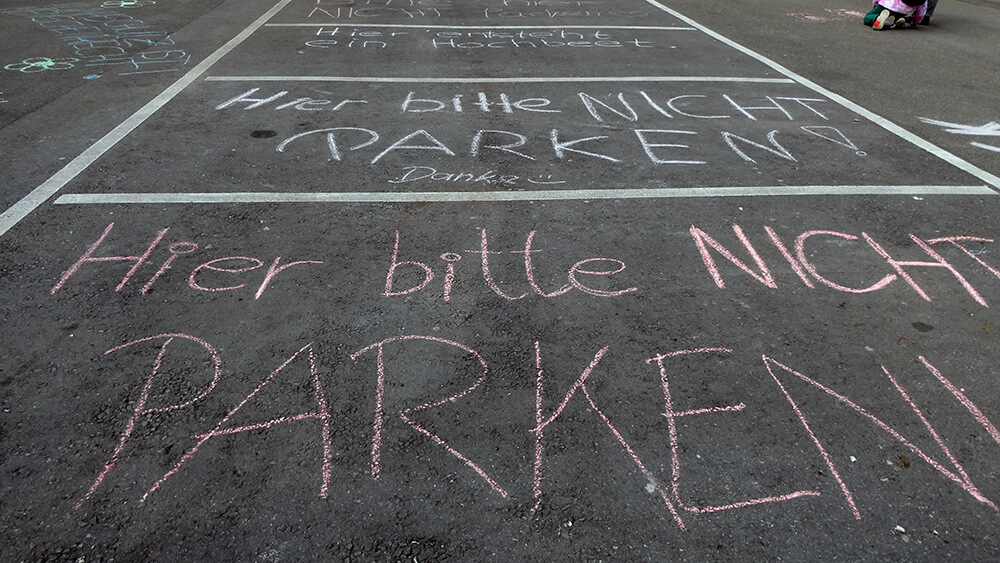 Hier entsteht
ein Hochbeet
Hier bitte NICHT
PARKEN!
Danke
Hier bitte NICHT
PARKEN!